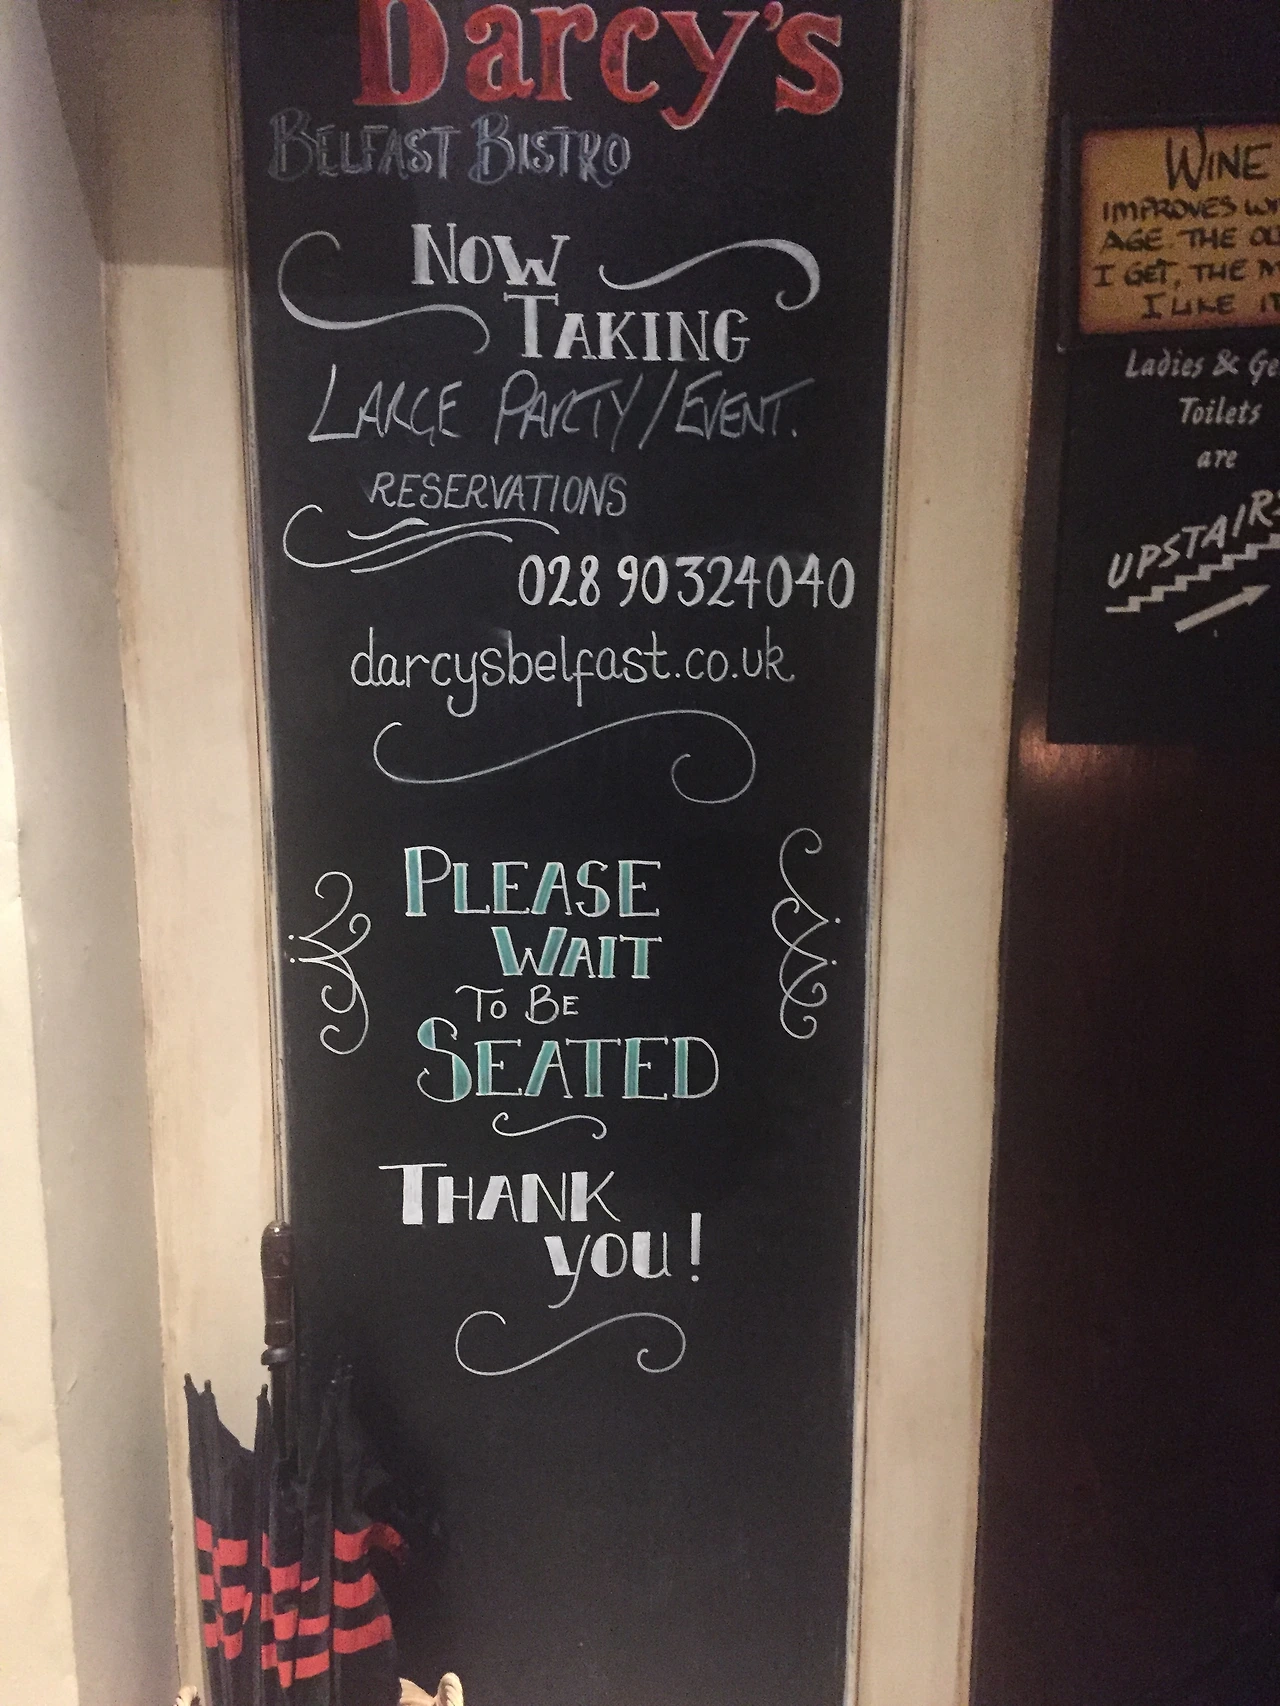 Darcy's
BELFAST BISTRO
NOW
TAKING
LARGE PARTY/EVENT.
RESERVATIONS
028 90324040
darcysbelfast.co.uk
PLEASE
WAIT
TO BE
SEATED
THANK
YOU!
WINE
IMPROVES
AGE. THE
I GET, THE
I LIKE
Ladies &
Toilets
are
UPSTAIRS